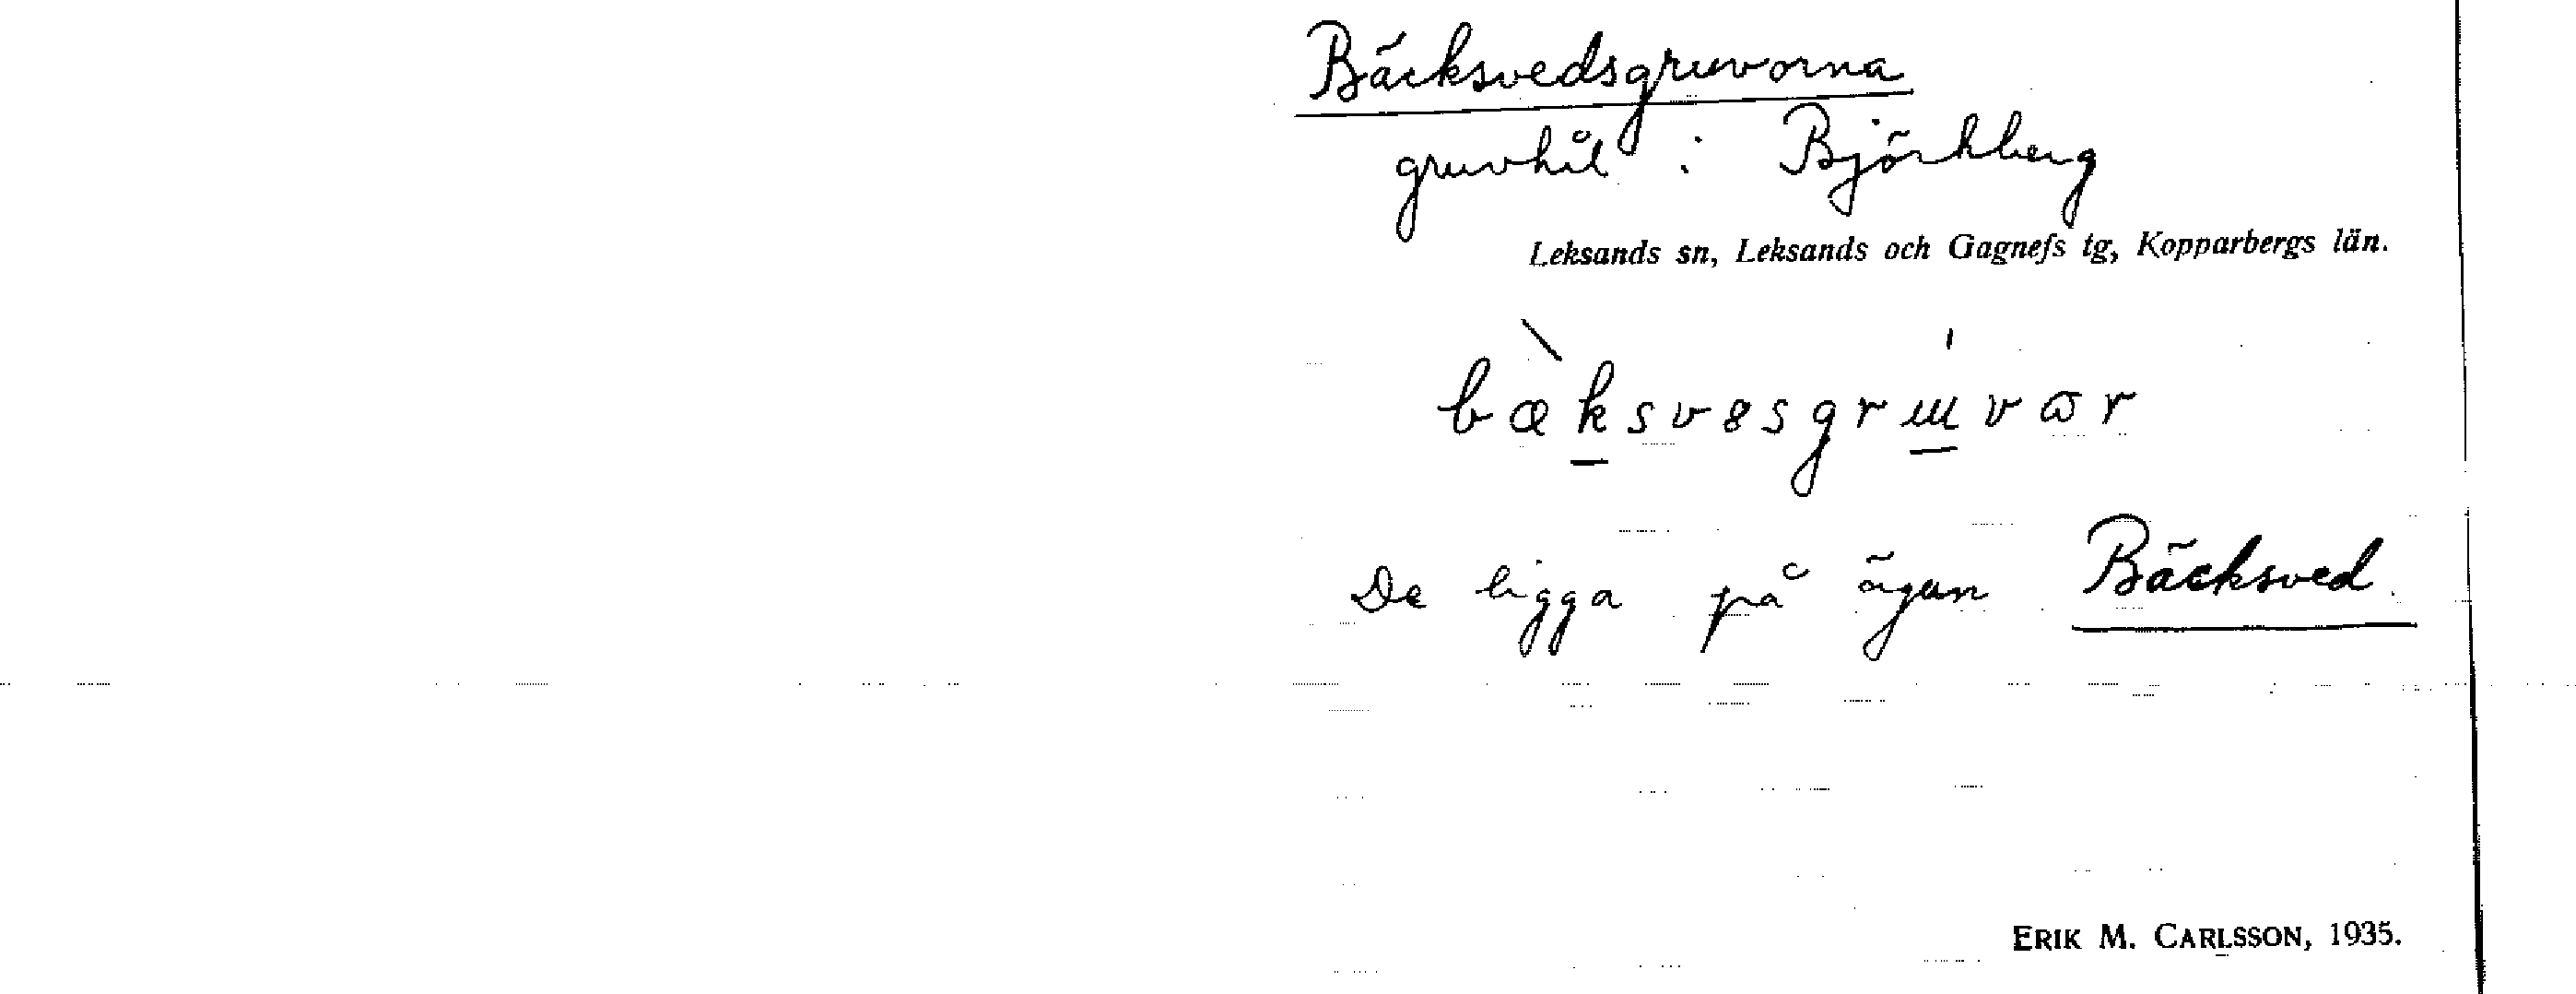 Bäcksvedsgruvorna
gruvhål i Björkberg
Leksands sn, Leksands och Gagnefs tg, Kopparbergs län.
De ligga på ägan Bäcksved
ERIK M. CARLSSON, 1935.